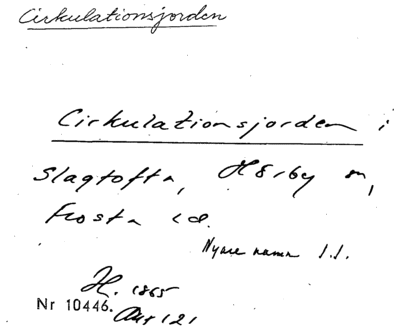 Cirkulationsjorden
Cirkulationsjorden i
Slagtofta, Hörby sn,
Frosta hd.
Nyare namn
H. 1865
Nr 10446. Akt 121